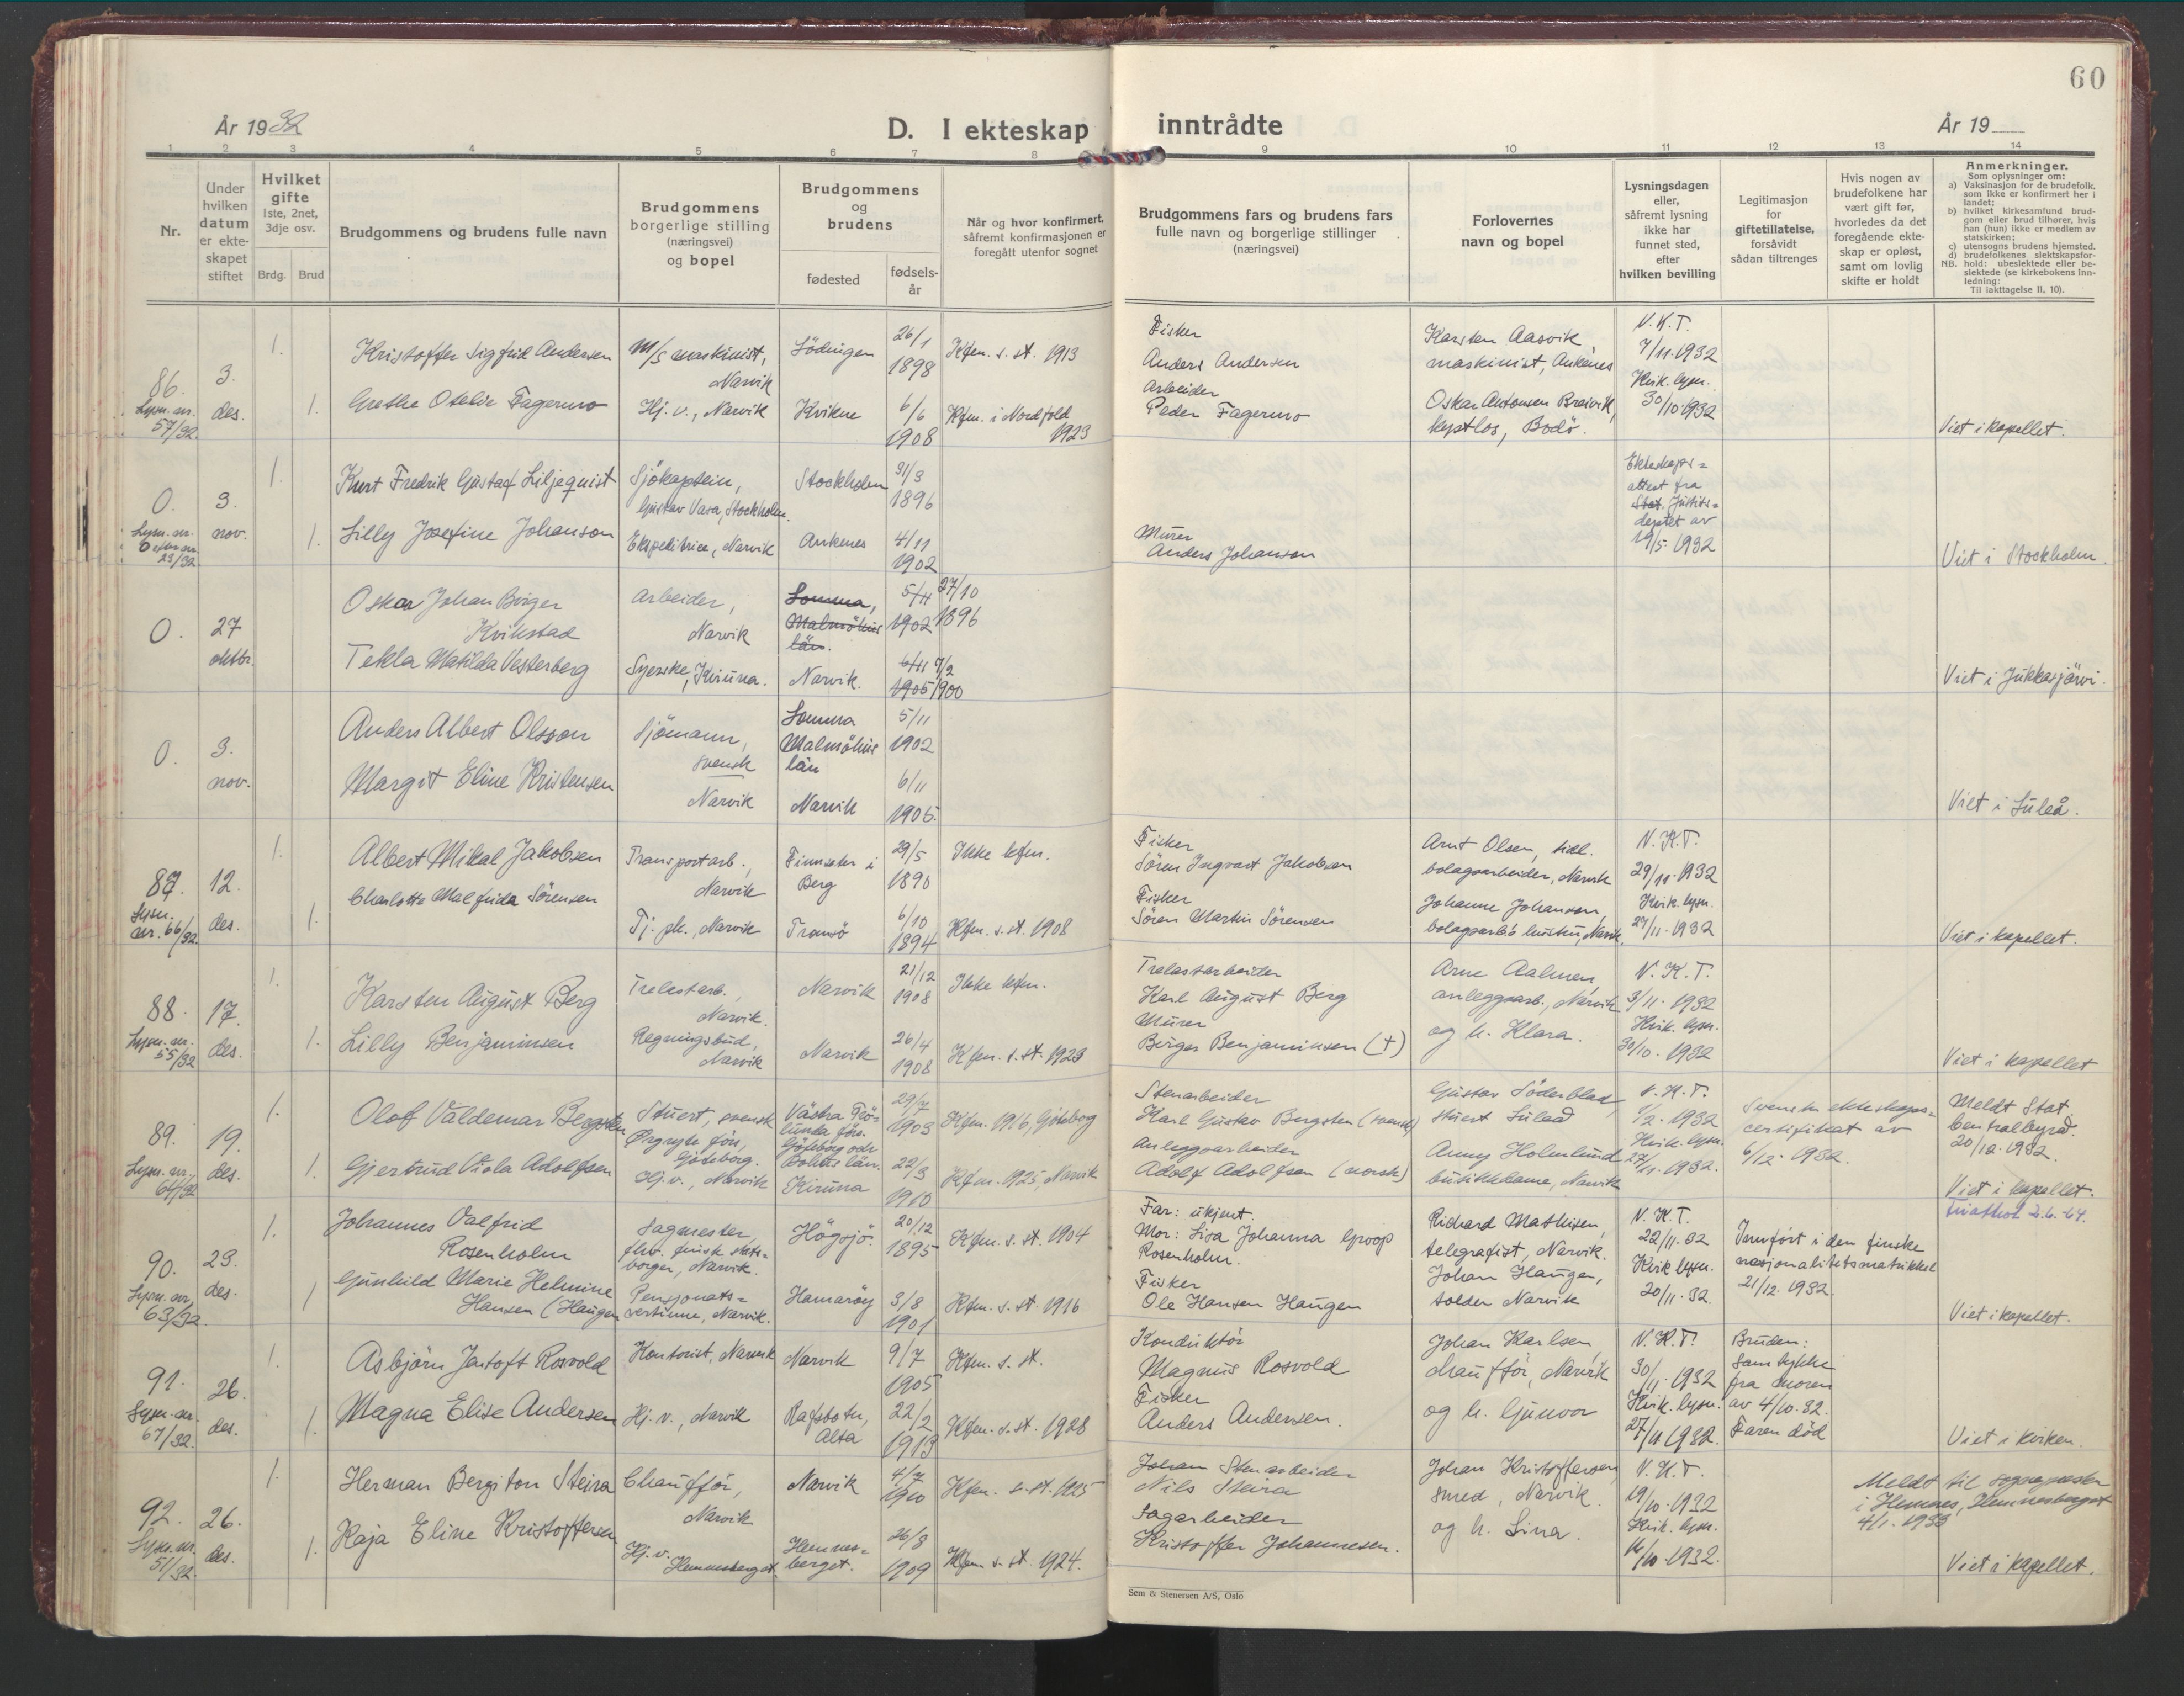 60
År 1932
D. I ekteskap inntrådte
År 19
1 2 3 4 5 6 7 8 9 10 11 12 13 14
Nr.
Under hvilken datum er ekteskapet stiftet
Hvilket gifte
1ste, 2net, 3dje osv.
Brdg. Brud
Brudgommens og brudens fulle navn
Brudgommens borgerlige stilling (næringsvei) og bopel
Brudgommens og brudens
fødested
fødselsår
Når og hvor konfirmert, såfremt konfirmasjonen er foregått utenfor sognet
Brudgommens fars og brudens fars fulle navn og borgerlige stillinger (næringsvei)
Forlovernes navn og bopel
Lysningsdagen eller, såfremt lysning ikke har funnet sted, efter hvilken bevilling
Legitimasjon for giftetillatelse, forsåvidt sådan tiltrenges
Hvis nogen av brudefolkene har vært gift før, hvorledes da det foregående ekteskap er opløst, samt om lovlig skifte er holdt
Anmerkninger.
Som oplysninger om:
a) Vaksinasjon for de brudefolk, som ikke er konfirmert her i landet;
b) hvilket kirkesamfund brudgom eller brud tilhører, hvis han (hun) ikke er medlem av statskirken;
c) utensogns brudens hjemsted.
d) brudefolkenes slektskapsforhold: ubeslektede eller beslektede (se kirkebokens innledning:
NB. Til iakttagelse II, 10).
86.
Lysn. nr.
57/32.
3.
des.
1.
1.
Kristoffer Sigfrid Andersen
Grethe Otelie Fagermo
M/S maskinist,
Narvik
Hj. v., Narvik
Lödingen
Kvikne
26/1
1898
6/6
1908
Kfm. s. st. 1913
Kfm. i Nordfold
1923
Fisker
Anders Andersen
Arbeider
Peder Fagermo
Karsten Aasvik,
maskinist, Ankenes
Oskar Antonsen Breivik,
Bodö.
N. K. T.
7/11.1932
Kvik. lysn.
30/10.1932
Viet i kapellet.
0.
Lysn. nr.
23/32
3.
nov.
1.
1.
Kurt Fredrik Gustaf Liljequist
Lilly Josefine Johanson
Sjökaptein,
Gustav Vasa, Stockholm.
Ekspeditrice, Narvik
Stockholm
Ankenes
31/3
1896
4/11
1902
Murer
Anders Johanson
Ekteskaps=
attest fra
Stat. Justits=
deptet av
19/5.1932
Viet i Stockholm.
0.
27
oktbr.
Oskar Johan Birger
Kvikstad
Tekla Matilda Vesterberg
Arbeider,
Narvik
Syerske, Kiruna.
Lomma,
Malmöhus
län.
Narvik.
5/11 27/10
1902 1896
6/11 7/2
1905 1900
Viet i Jukkasjärvi.
0.
3.
nov.
Anders Albert Olsson
Margit Eline Kristensen
Sjömann,
svensk
Narvik
Lomma
Malmöhus
län
Narvik
5/11
1902
6/11
1905.
Viet i Luleå.
87.
Lysn.
nr. 66/32.
12.
des.
1.
1.
Albert Mikal Jakobsen
Charlotte Malfrida Sörensen
Transportarb.,
Narvik
Tj. pk., Narvik
Finnseter i
Berg
Tromsö
29/5
1890
6/10
1894
Ikke kfm.
Kfm. s. st. 1908
Fisker
Sören Ingvart Jakobsen
Fisker
Sören Martin Sörensen
Arnt Olsen,
bolagsarbeider, Narvik
Johanne Johansen,
bolagsarb.s hustru, Narvik.
N. K. T.
29/11.1932
Kvik. lysn.
27/11.1932
Viet i kapellet.
88.
Lysn. nr.
55/32
17.
des.
1.
1.
Karsten August Berg
Lilly Benjaminsen
Trelastarb.,
Narvik.
Regningsbud,
Narvik
Narvik
Narvik
21/12
1908
26/4
1908
Ikke kfm.
Kfm. s. st. 1923
Trelastarbeider
Karl August Berg
Murer
Birger Benjaminsen (+)
Arne Aalmen,
anleggsarb., Narvik
og h. Klara.
N. K. T.
3/11.1932
Kvik. lysn.
30/10.1932
Viet i kapellet
89.
Lysn. nr.
64/32
19.
des.
1.
1.
Olof Valdemar Bergsten
Gjertrud Viola Adolfsen
Stuert, svensk
Ørgryte förs,
Göteborg.
Hj. v., Narvik
Västra Frö=
lunda förs.
Göteborg och
Bohus län.
Kiruna
29/7
1903
22/3
1910
Kfm. 1916, Göteborg
Kfm. 1925, Narvik
Stenarbeider
Karl Gustav Bergsten (svensk)
Anleggsarbeider
Adolf Adolfsen (norsk)
Gustav Söderblad,
stuert Luleå
Anny Holmlund
butikkdame, Narvik
N. K. T.
1/2.1932
Kvik. lysn.
27/11.1932.
Svensk ekteskaps=
certifikat av
6/12.1932.
Meldt Stat.
Centralbyrå.
20/12.1932.
Viet i kapellet.
2.6.64.
90.
Lysn. nr.
63/32.
23.
des.
1.
1
Johannes Valfrid
Rosenholm
Gunhild Marie Helmine
Hansen (Haugen
Sagmester,
fhv. finsk stats=
borger, Narvik.
Pensjonats=
vertinne, Narvik.
Högsjö.
Hamaröy
20/12
1895
3/8
1901
Kfm. s. st. 1904
Kfm. s. st. 1916
Far: ukjent.
Mor: Lisa Johanna Groop
Rosenholm.
Fisker
Ole Hansen Haugen
Richard Mathisen,
telegrafist, Narvik.
Johan Haugen,
tolder Narvik
N. K. T.
22/11.32
Kvik lysn.
20/11.32.
Innfört i den finske
nasjonalitetsmatrikkel
21/12.1932.
Viet i kapellet.
91.
Lysn. nr.
67/32.
26.
des.
1.
1.
Asbjörn Jentoft Rosvold
Magna Elise Andersen
Kontorist, Narvik
Hj. v., Narvik
Narvik
Rafsbotn,
Alta
9/7
1905
22/2
1913
Kfm. s. st.
Kfm. s. st. 1928
Konduktör
Magnus Rosvold
Fisker
Anders Andersen.
Johan Karlsen,
chaufför, Narvik
og h. Gunvor
N. K. T.
30/11.1932
Kvik. lysn.
27/11 1932.
Bruden:
Samtykke
fra moren
av 4/10.32.
Faren död
Viet i kirken.
92.
Lysn. nr.
51/32.
26.
des.
1.
1.
Herman Bergiton Steira
Kaja Eline Kristoffersen
Chaufför,
Narvik
Hj. v.
Hemnesberget.
Narvik
Hemnes=
berget.
4/7
1910
26/8
1909
Kfm. s. st. 1925
Kfm s. st. 1924.
Johan Stenarbeider
Nils Steira
Sagarbeider
Kristoffer Johannesen.
Johan Kristoffersen,
smed, Narvik.
og h. Lina.
N. K. T.
19/10.1932
Kvik. lysn.
16/10.1932.
Meldt til sognepresten
i Hemnes, Hemnesberget
4/1.1933
Viet i kapellet.
Sem & Stenersen A/S, Oslo